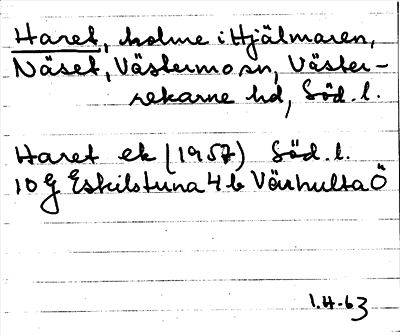 Haret, holme i Hjälmaren,
Näset, Västermo sn, Väster-
rekarne hd, Söd. l.
Haret ek (1957) Söd. l.
10 G Eskilstuna 4 b Vårhulta Ö
1.4-63